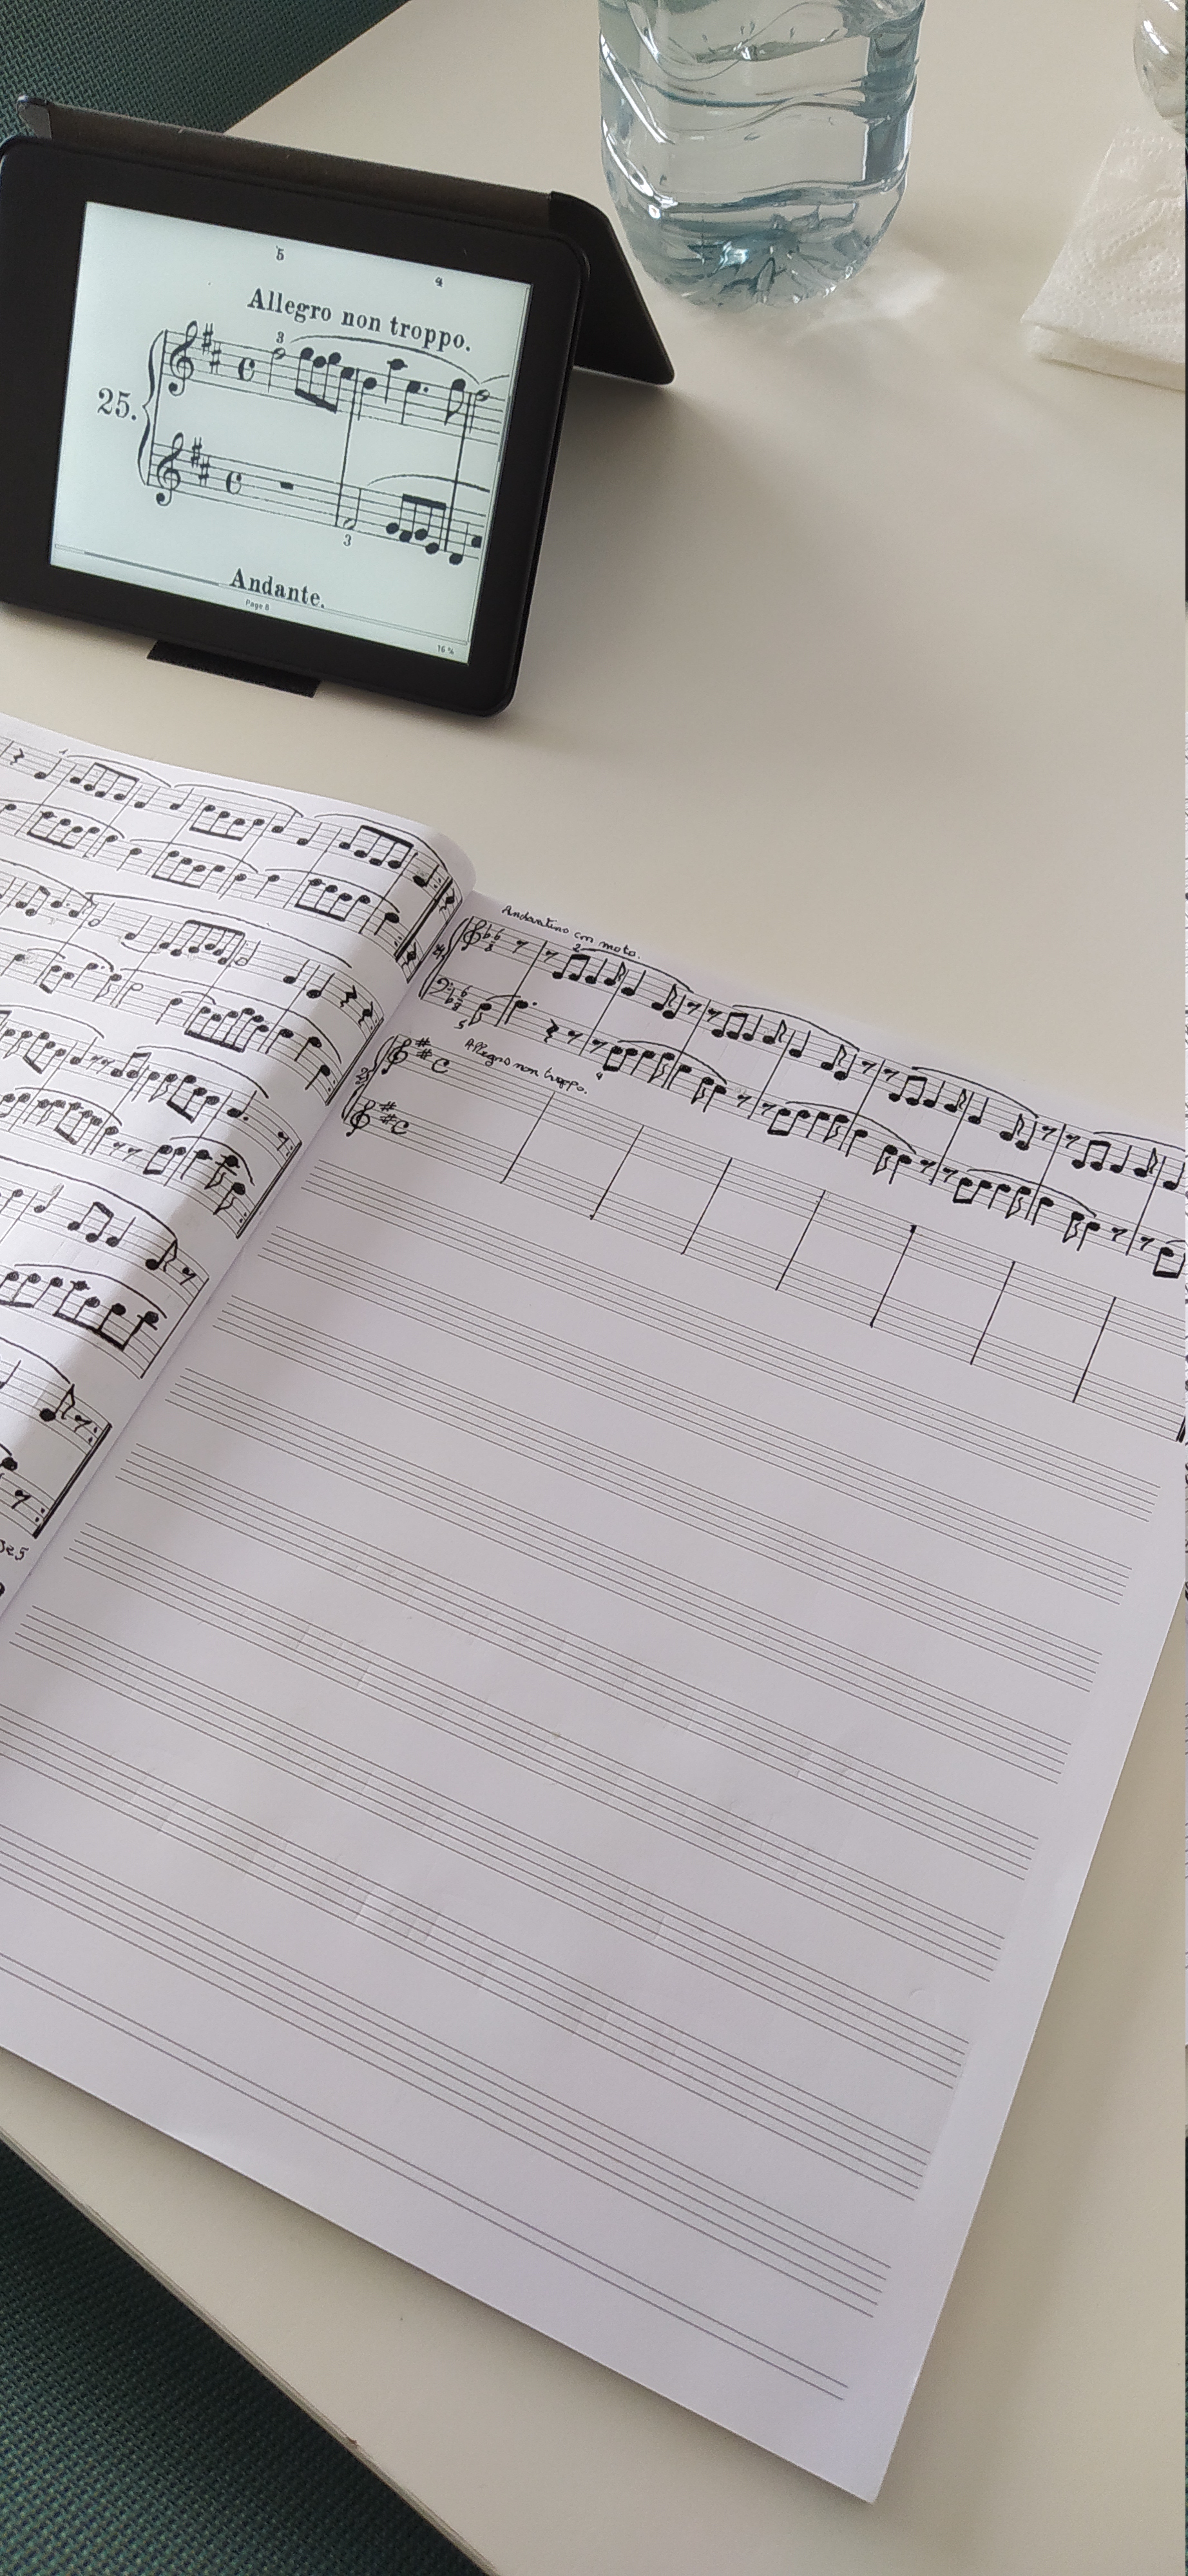 5
4
Allegro non troppo.
3
25.
3
Andante.
Page 8
16 %
Andantino con moto.
2
5
4
Allegro non troppo.